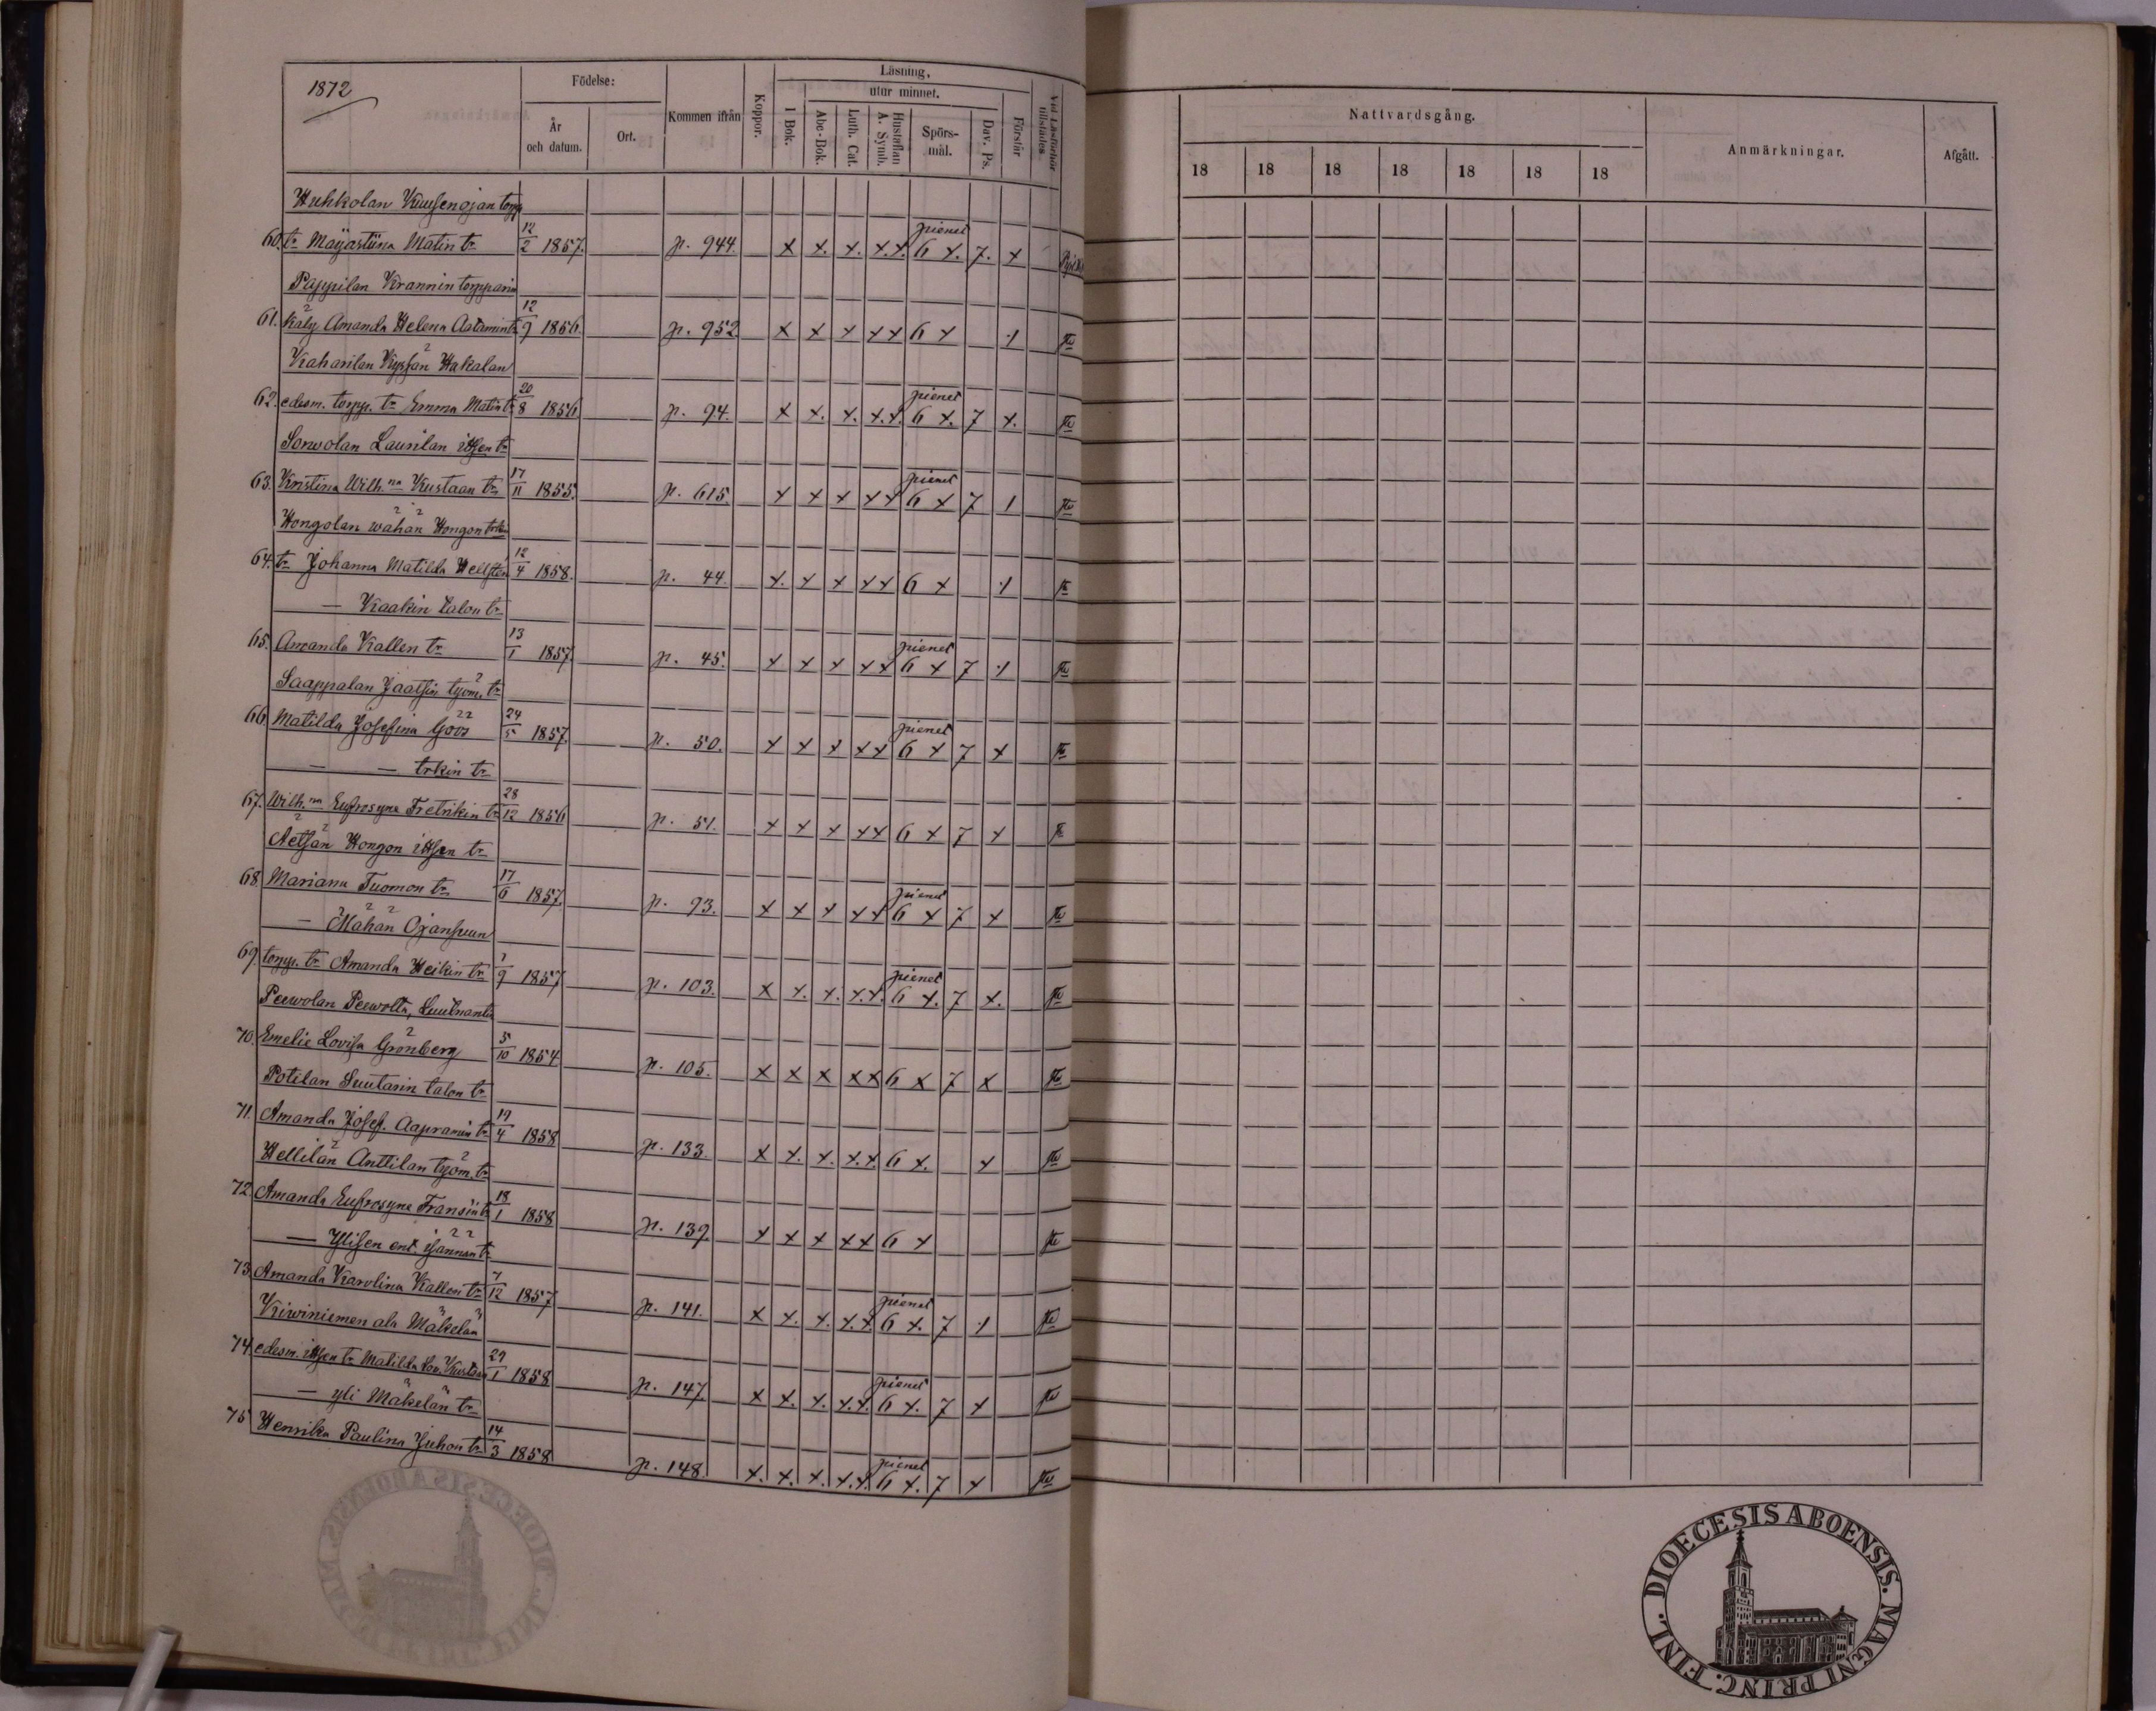 1872
Födelse:
År och datum.
Ort.
Kommen ifrån
Koppor.
Läsning,
utur minnet.
I Bok.
Abc-Bok.
Luth. Cat.
Hustaflan A. Symb.
Spörs-mål.
Dav. Ps.
Förstår
Vid Läsförhör tillstädes
Nattvardsgång.
18 18 18 18 18 18 18
Anmärkningar.
Afgått.
Huhkolan Kuusenojan torp.
60. tr Mayastiina Matin tr 12/2 1857. p. 944. x x. x. x.x. pienet 6 x. 7. x
Pappilan Krannin torpparin
61. käly Amanda Helena Aatamin tr 12/9 1856. p. 952 x x x x x 6 x 1
Kaharilan Kyssän Hakalan
62. edesm. torpp. tr Emma Matin tr 20/8 1856 p. 94. x x. x. x.x. pienet 6 x. 7 x.
Sorwolan Laurilan itsen tr
63. Kristina Wilh.na Kustaan tr 17/11 1855. p. 615. x x x x x pienet 6 x 7 1
Hongolan wähän Hongon trkin
64. tr Johanna Matilda Hellsten 12/4 1858. p. 44. x. x x x x 6 x 1
— Kaakin talon tr
65. Amanda Kallen tr 13/1 1857 p. 45. x x x x x pienet 6 x 7 1
Saappalan Jaatsin työm. tr
66. Matilda Josefina Göös 24/5 1857. p. 50. x x x x x pienet 6 x 7 x
— — trkin tr
67. Wilh.na Eufrosyne Fretrikin tr 28/12 1856 p. 51. x x x x x 6 x 7 x
Äetsän Hongon itsen tr
68. Mariana Tuomon tr 17/6 1857. p. 93. x x x x x pienet 6 x 7 x
— Mähän Ojansuun
69. torpp. tr Amanda Heikin tr 7/9 1857 p. 103. x x. x. x.x. pienet 6 x. 7 x.
Peewolan Peewolta, Luutnantin
70. Emelie Lovisa Grönberg 5/10 1854. p. 105. x x x x x 6 x 7 x
Potilan Suutarin talon tr
71. Amanda Josef. Aapramin tr 19/4 1858 p. 133. x x. x. x.x. 6 x. x
Hellilän Anttilan työm. tr
72. Amanda Eufrosyne Fransin tr 18/1 1858 p. 139. x x x x x 6 x
— Ylisen ent. isännän tr
73. Amanda Karolina Kallen tr 7/12 1857 p. 141. x x. x. x.x. pienet 6 x. 7 1
Kiwiniemen ala Mäkelän
74. edesm. itsen tr Matilda Lov. Kustaan 29/1 1858 p. 147. x x. x. x.x. pienet 6 x. 7 x
— yli Mäkelän tr
75 Henrika Paulina Juhon tr 14/3 1858 p. 148. x. x. x. x.x. pienet 6 x. 7 x
DIOECESIS ABOENSIS. MAGNI PRINC. FINL.